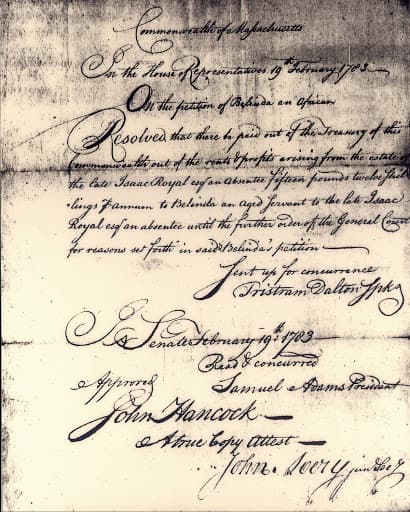 Commonwealth of Massachusetts
In the House of Representatives 19th February 1783
On the petition of Belinda an African
Resolved that there be paid out of the Treasury of this
Commonwealth out of the rents & profits arising from the estate of
the late Isaac Royal esqr an Absentee fifteen pounds twelve shil
lings ⅌ annum to Belinda an aged Servant to the late Isaac
Royal esqr an absentee until the further order of the General Court
for reasons set forth in said Belinda's petition
Sent up for concurrence
Tristram Dalton Spkr
In Senate February 19th 1783
Read & concurred
Approved
Samuel Adams President
John Hancock
A true Copy Attest
John Avery jun Secy